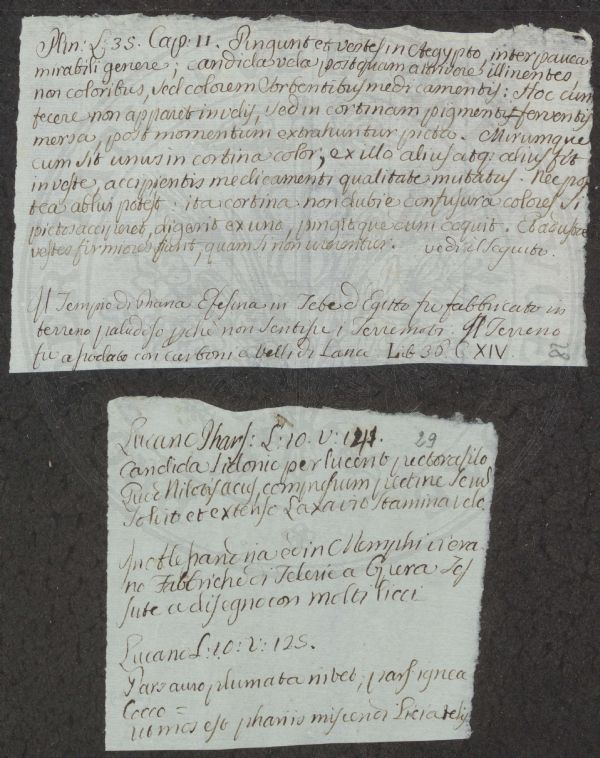 Plin: L: 35. Cap: 11. Pingunt et vestes in Aegypto, inter pauca
mirabili genere; candida vela postquam attrivere illinentes,
non coloribus, sed colorem sorbentibus medicamentis: Hoc cum
fecere non apparet in velis, sed in cortinam pigmenti ferventis
mersa, post momentum extrahuntur picta. Mirumque
cum sit unus in cortina color, ex illo alius atq: alius fit
in veste, accipientis medicamenti qualitate mutatus. Nec pos
tea ablui potest: ita cortina non dubie confusura colores si
pictos acciperet, digerit ex uno, pingitque dum coquit. Et adustae
vestes firmiores fiunt, quam si non urerentur. vedi il seguito.
Il Tempio di Diana Efesina in Tebe d'Egitto fu fabbricato in
terreno paludoso pchè non sentisse i Terremoti. Il Terreno
fu assodato con carboni e velli di Lana Lib 36 C XIV.
28
Lucano Phars: L: 10. V: 141. 29
Candida Sidonio perlucent pectora filo
Quod Nilotis acus, compressum pectine Serum
Solvit et extenso laxavit stamina velo
In Alessandria ed in Memphi ci era
no Fabbriche di Telerie a Tes
sute a disegno con molti licci
Lucano L: 10: V: 125.
Pars auro plumata nitet; pars ignea
Cocco =
ut mos est phariis miscendi licia telis